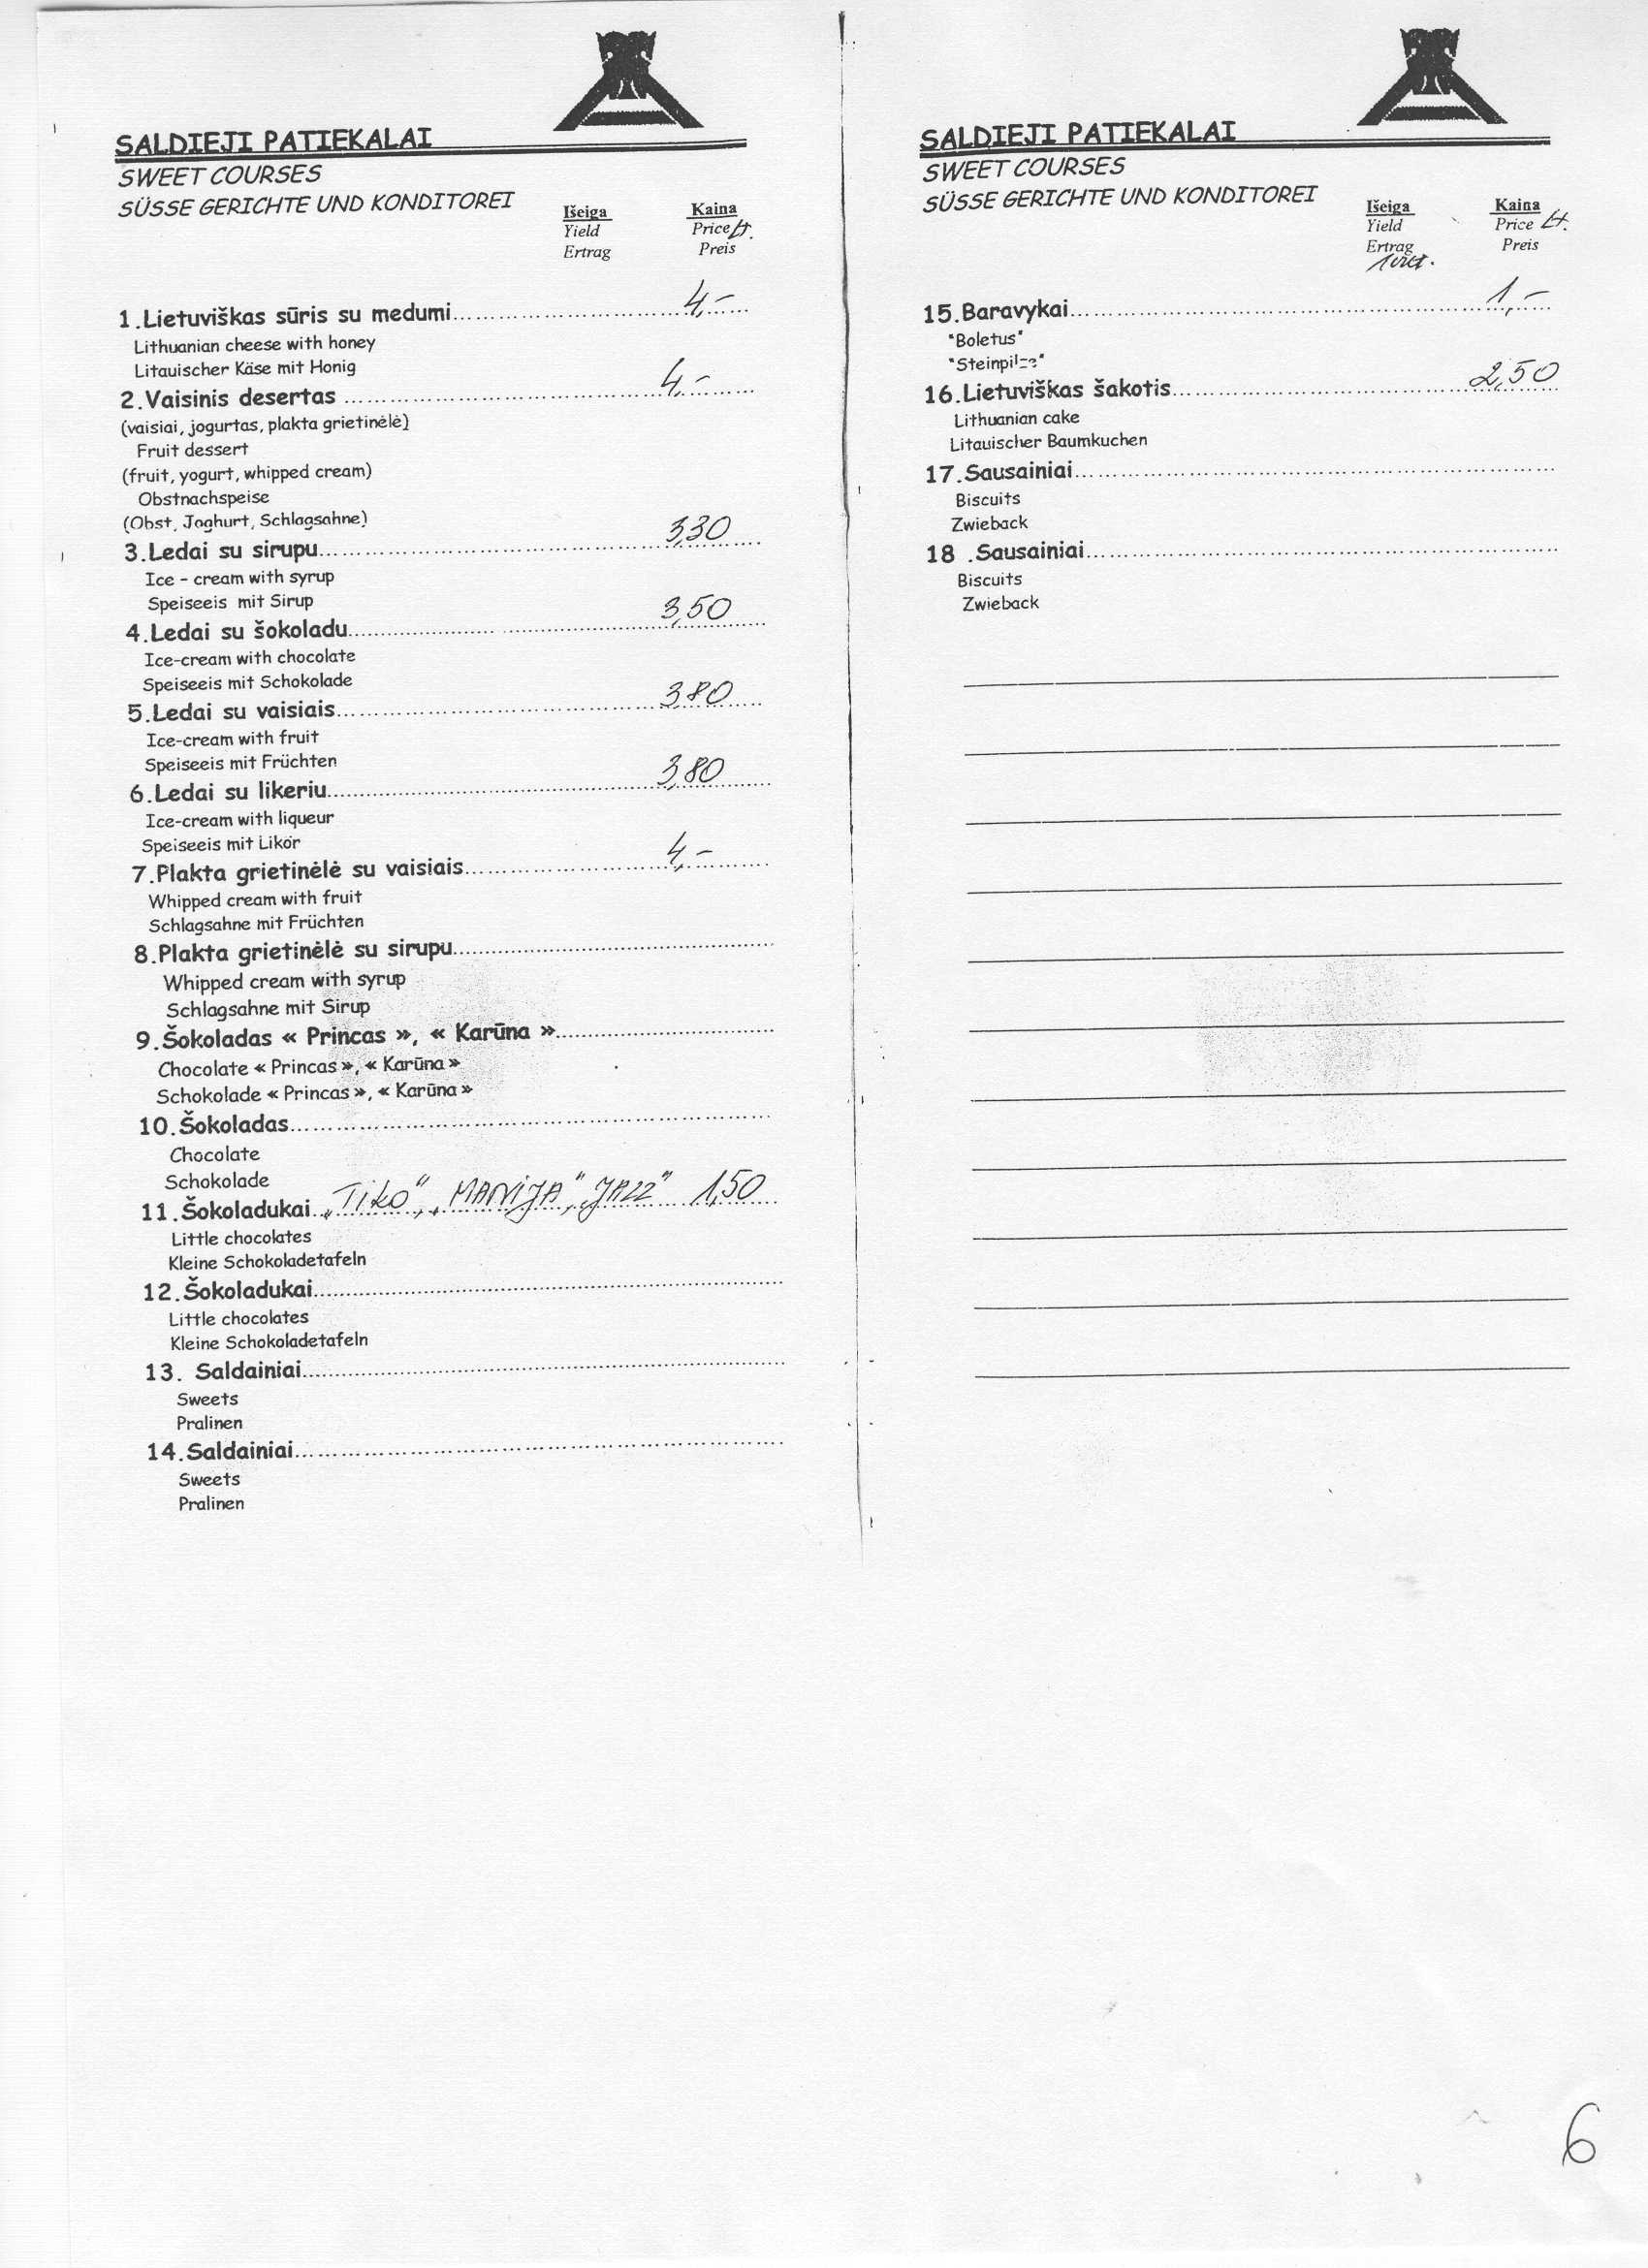 SALDIEJI PATIEKALAI
SWEET COURSES
SÜSSE GERICHTE UND KONDITOREI
Išeiga Kaina
Yield Price Lt.
Ertrag Preis
1.Lietuviškas sūris su medumi 4,-
Lithuanian cheese with honey
Litauischer Käse mit Honig
2.Vaisinis desertas 4,-
(vaisiai, jogurtas, plakta grietinėlė)
Fruit dessert
(fruit, yogurt, whipped cream)
Obstnachspeise
(Obst, Joghurt, Schlagsahne)
3.Ledai su sirupu 3,30
Ice - cream with syrup
Speiseeis mit Sirup
4.Ledai su šokoladu 3,50
Ice-cream with chocolate
Speiseeis mit Schokolade
5.Ledai su vaisiais 3,80
Ice-cream with fruit
Speiseeis mit Früchten
6.Ledai su likeriu 3,80
Ice-cream with liqueur
Speiseeis mit Likör
7.Plakta grietinėlė su vaisiais 4,-
Whipped cream with fruit
Schlagsahne mit Früchten
8.Plakta grietinėlė su sirupu
Whipped cream with syrup
Schlagsahne mit Sirup
9.Šokoladas « Princas », « Karūna »
Chocolate « Princas », « Karūna »
Schokolade « Princas », « Karūna »
10.Šokoladas
Chocolate
Schokolade
11.Šokoladukai „Tiko", „MANIJA", „JAZZ" 1,50
Little chocolates
Kleine Schokoladetafeln
12.Šokoladukai
Little chocolates
Kleine Schokoladetafeln
13. Saldainiai
Sweets
Pralinen
14.Saldainiai
Sweets
Pralinen
SALDIEJI PATIEKALAI
SWEET COURSES
SÜSSE GERICHTE UND KONDITOREI
Išeiga Kaina
Yield Price Lt.
Ertrag Preis
1vnt.
15.Baravykai 1,-
"Boletus"
"Steinpilze"
16.Lietuviškas šakotis 2,50
Lithuanian cake
Litauischer Baumkuchen
17.Sausainiai
Biscuits
Zwieback
18 .Sausainiai
Biscuits
Zwieback
6